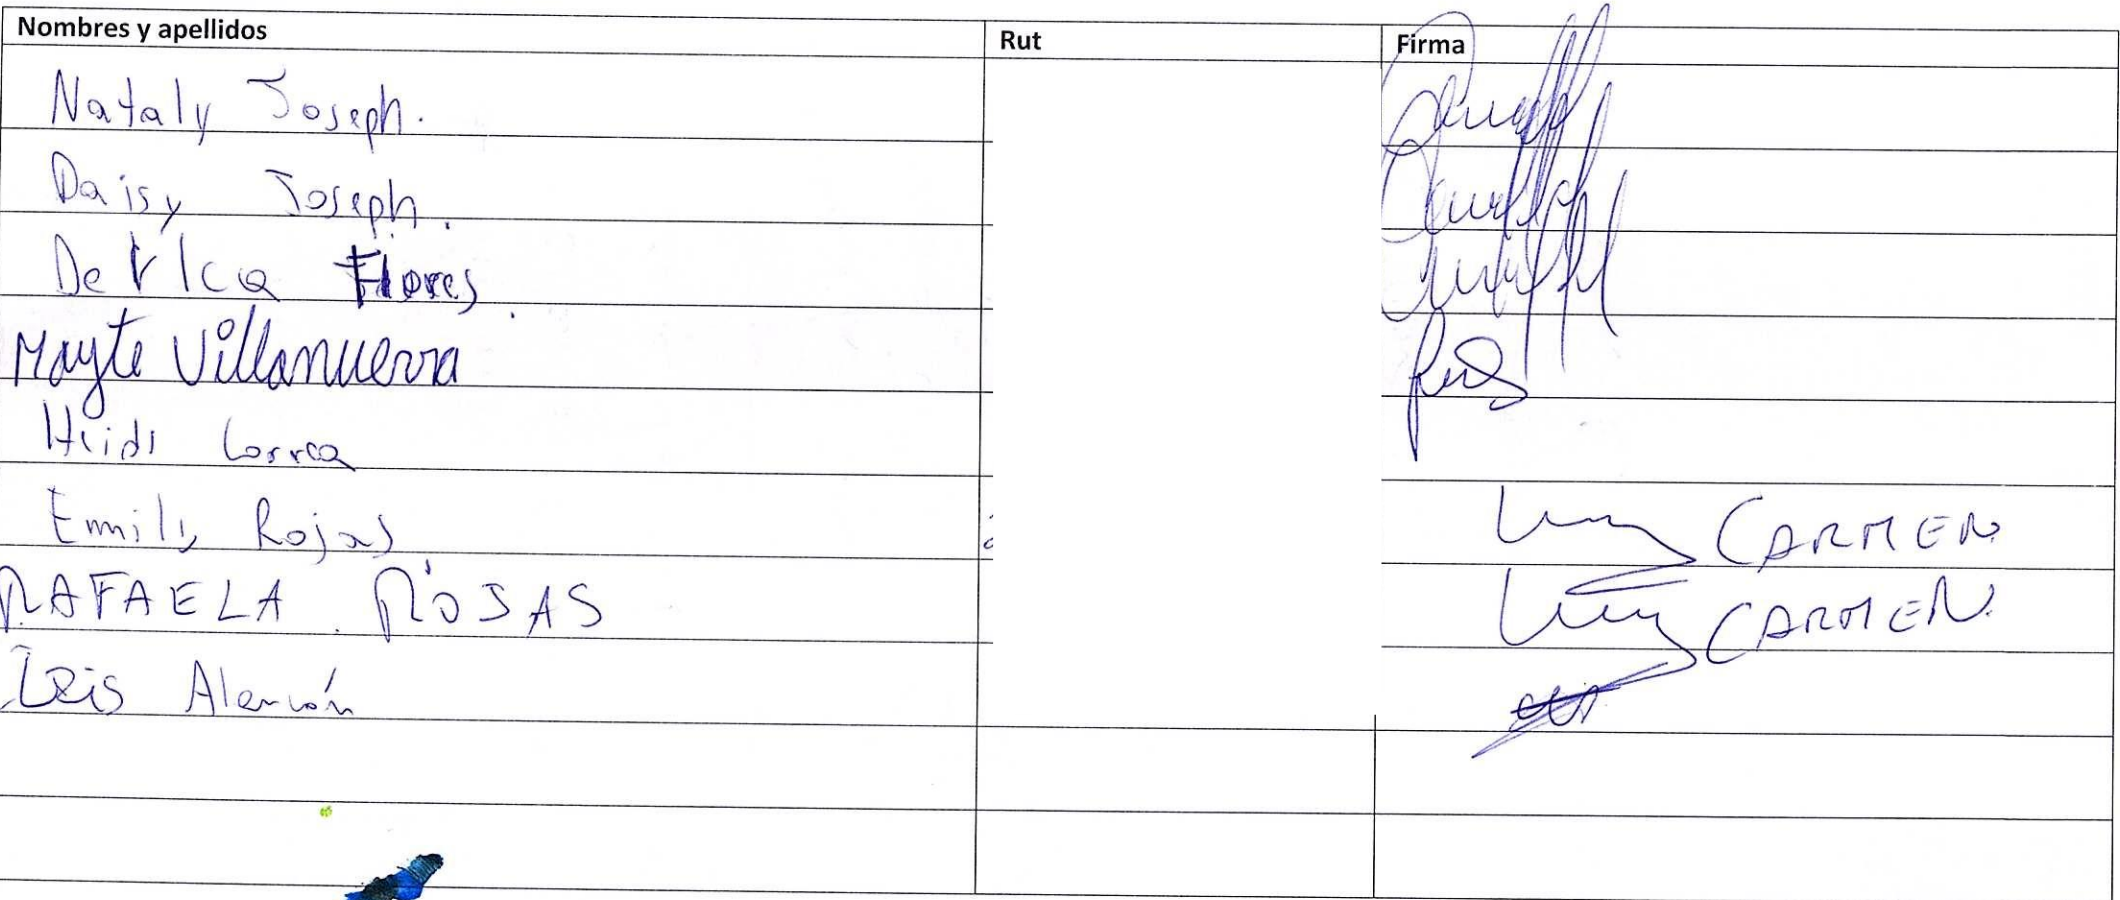 Nombres y apellidos Rut Firma
Nataly Joseph.
Daisy Joseph.
Flores
Mayte Villanueva
Heidi Correa
Emily Rojas CARMEN
RAFAELA ROJAS CARMEN
Alarcón